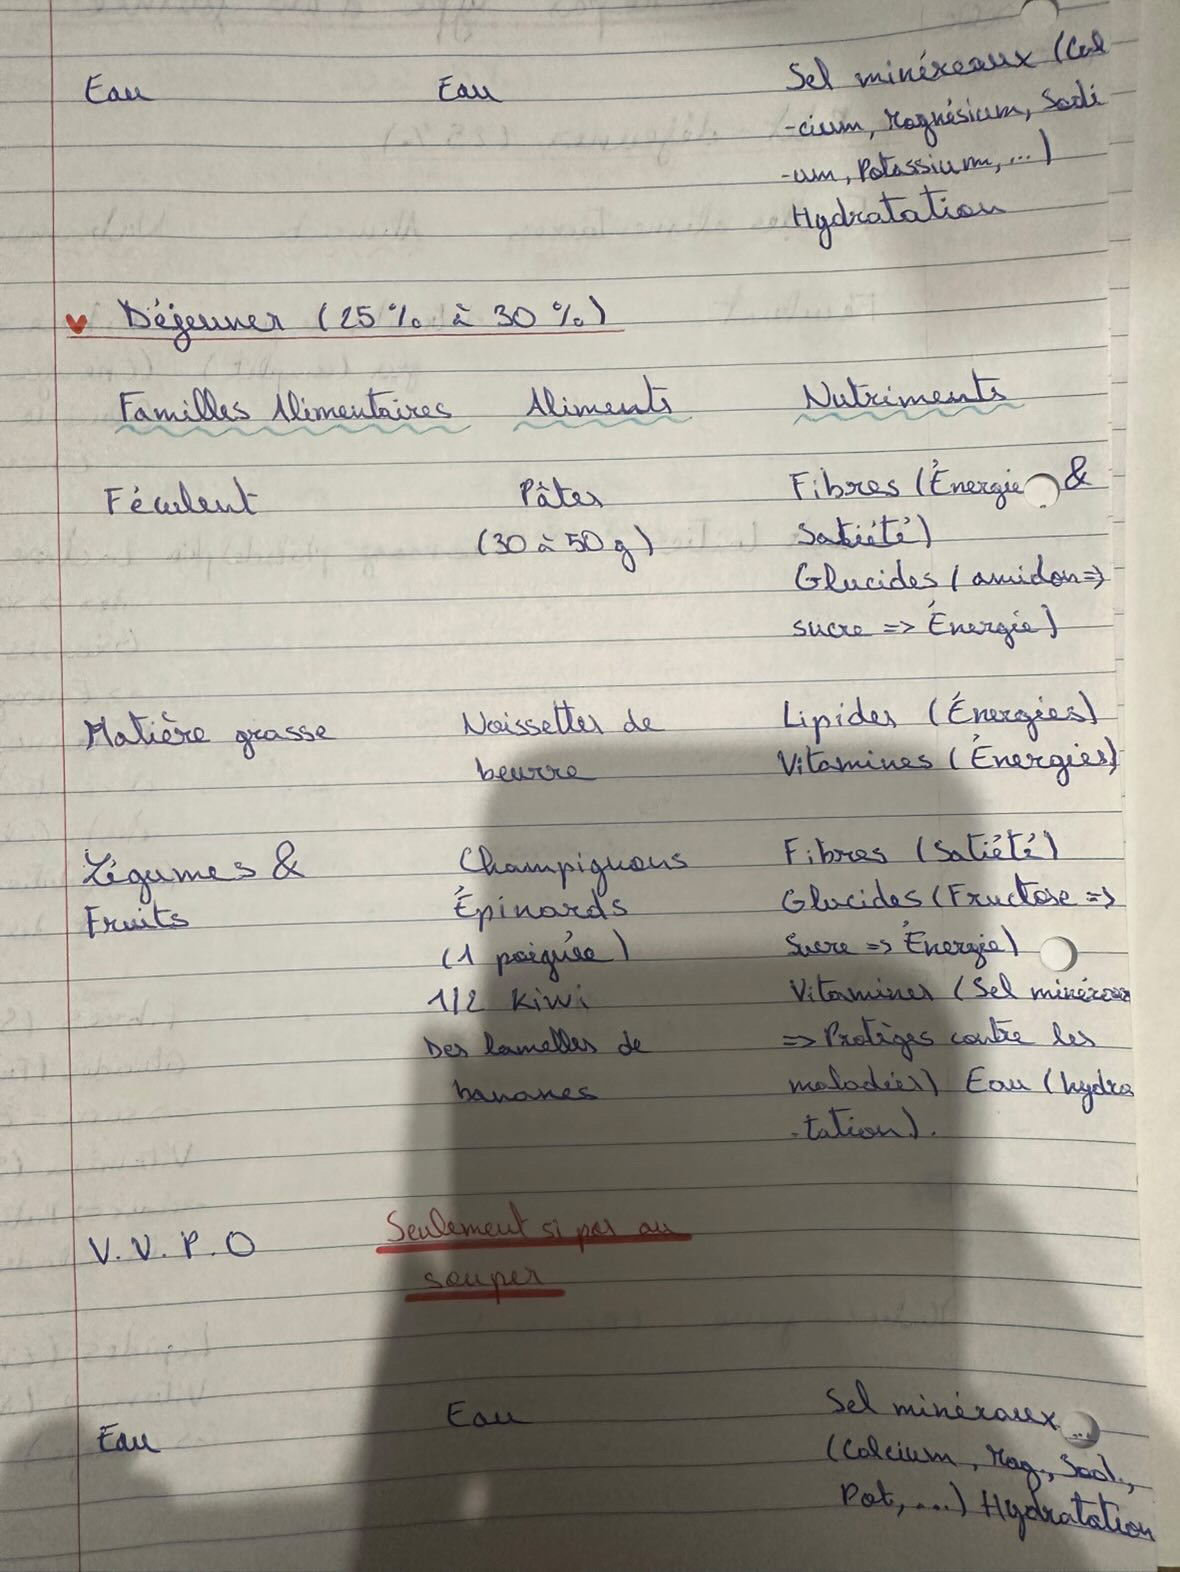 Eau Eau Sel minéreaux (Cal
-cium, Magnésium, Sodi
-um, Potassium, ...)
Hydratation
Déjeuner (25 % à 30 %)
Familles Alimentaires Aliments Nutriments
Féculent Pâtes Fibres (Énergie &
(30 à 50 g) Satiété)
Glucides (amidon =>
sucre => Énergie)
Matière grasse Noissettes de Lipides (Énergies)
beurre Vitamines (Énergies)
Légumes & Champignons Fibres (Satiété)
Fruits Épinards Glucides (Fructose =>
(1 poignée) Sucre => Énergie)
1/2 kiwi Vitamines (Sel minéreau
Des lamelles de => Protèges contre les
bananes maladies) Eau (hydra
-tation).
V.V.P.O Seulement si pas au
souper
Eau Eau Sel minéraux
(Calcium, Mag., Sod.,
Pot, ...) Hydratation